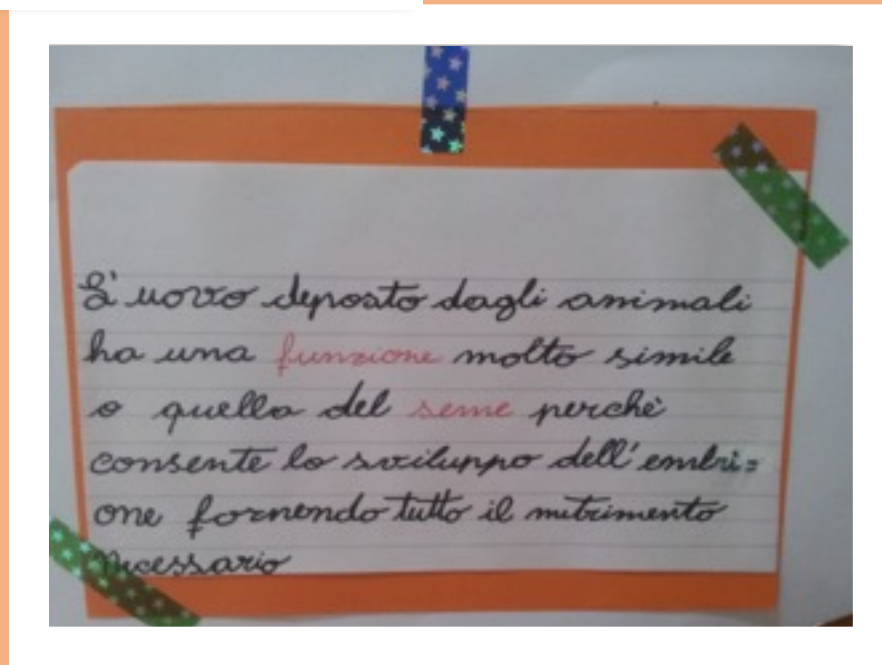 L'uovo deposto dagli animali
ha una funzione molto simile
a quella del seme perchè
consente lo sviluppo dell'embri=
one fornendo tutto il nutrimento
necessario